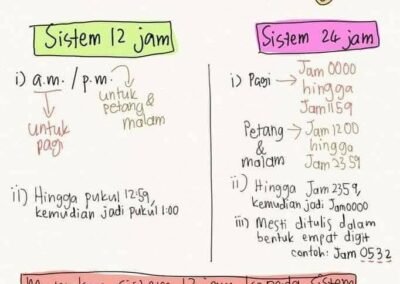 Sistem 12 jam
i) a.m. / p.m.
untuk
petang &
malam
untuk
pagi
ii) Hingga pukul 12:59,
kemudian jadi pukul 1:00
Sistem 24 jam
i) Pagi → Jam 0000
hingga
Jam 1159
Petang → Jam 1200
& hingga
malam Jam 2359
ii) Hingga Jam 2359,
kemudian jadi Jam 0000
iii) Mesti ditulis dalam
bentuk empat digit
contoh: Jam 0532
sistem 12 jam kepada sistem